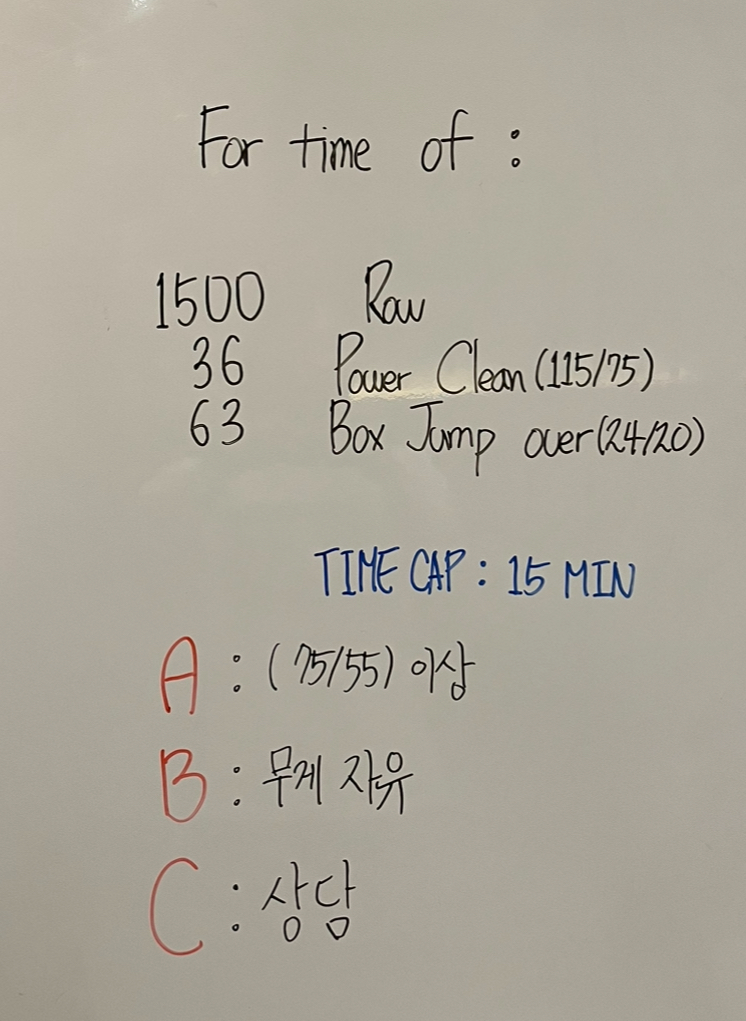 For time of :
1500 Row
36 Power Clean (115/75)
63 Box Jump over (24/20)
TIME CAP : 15 MIN
A : (75/55) 이상
B : 무게 자유
C : 상담